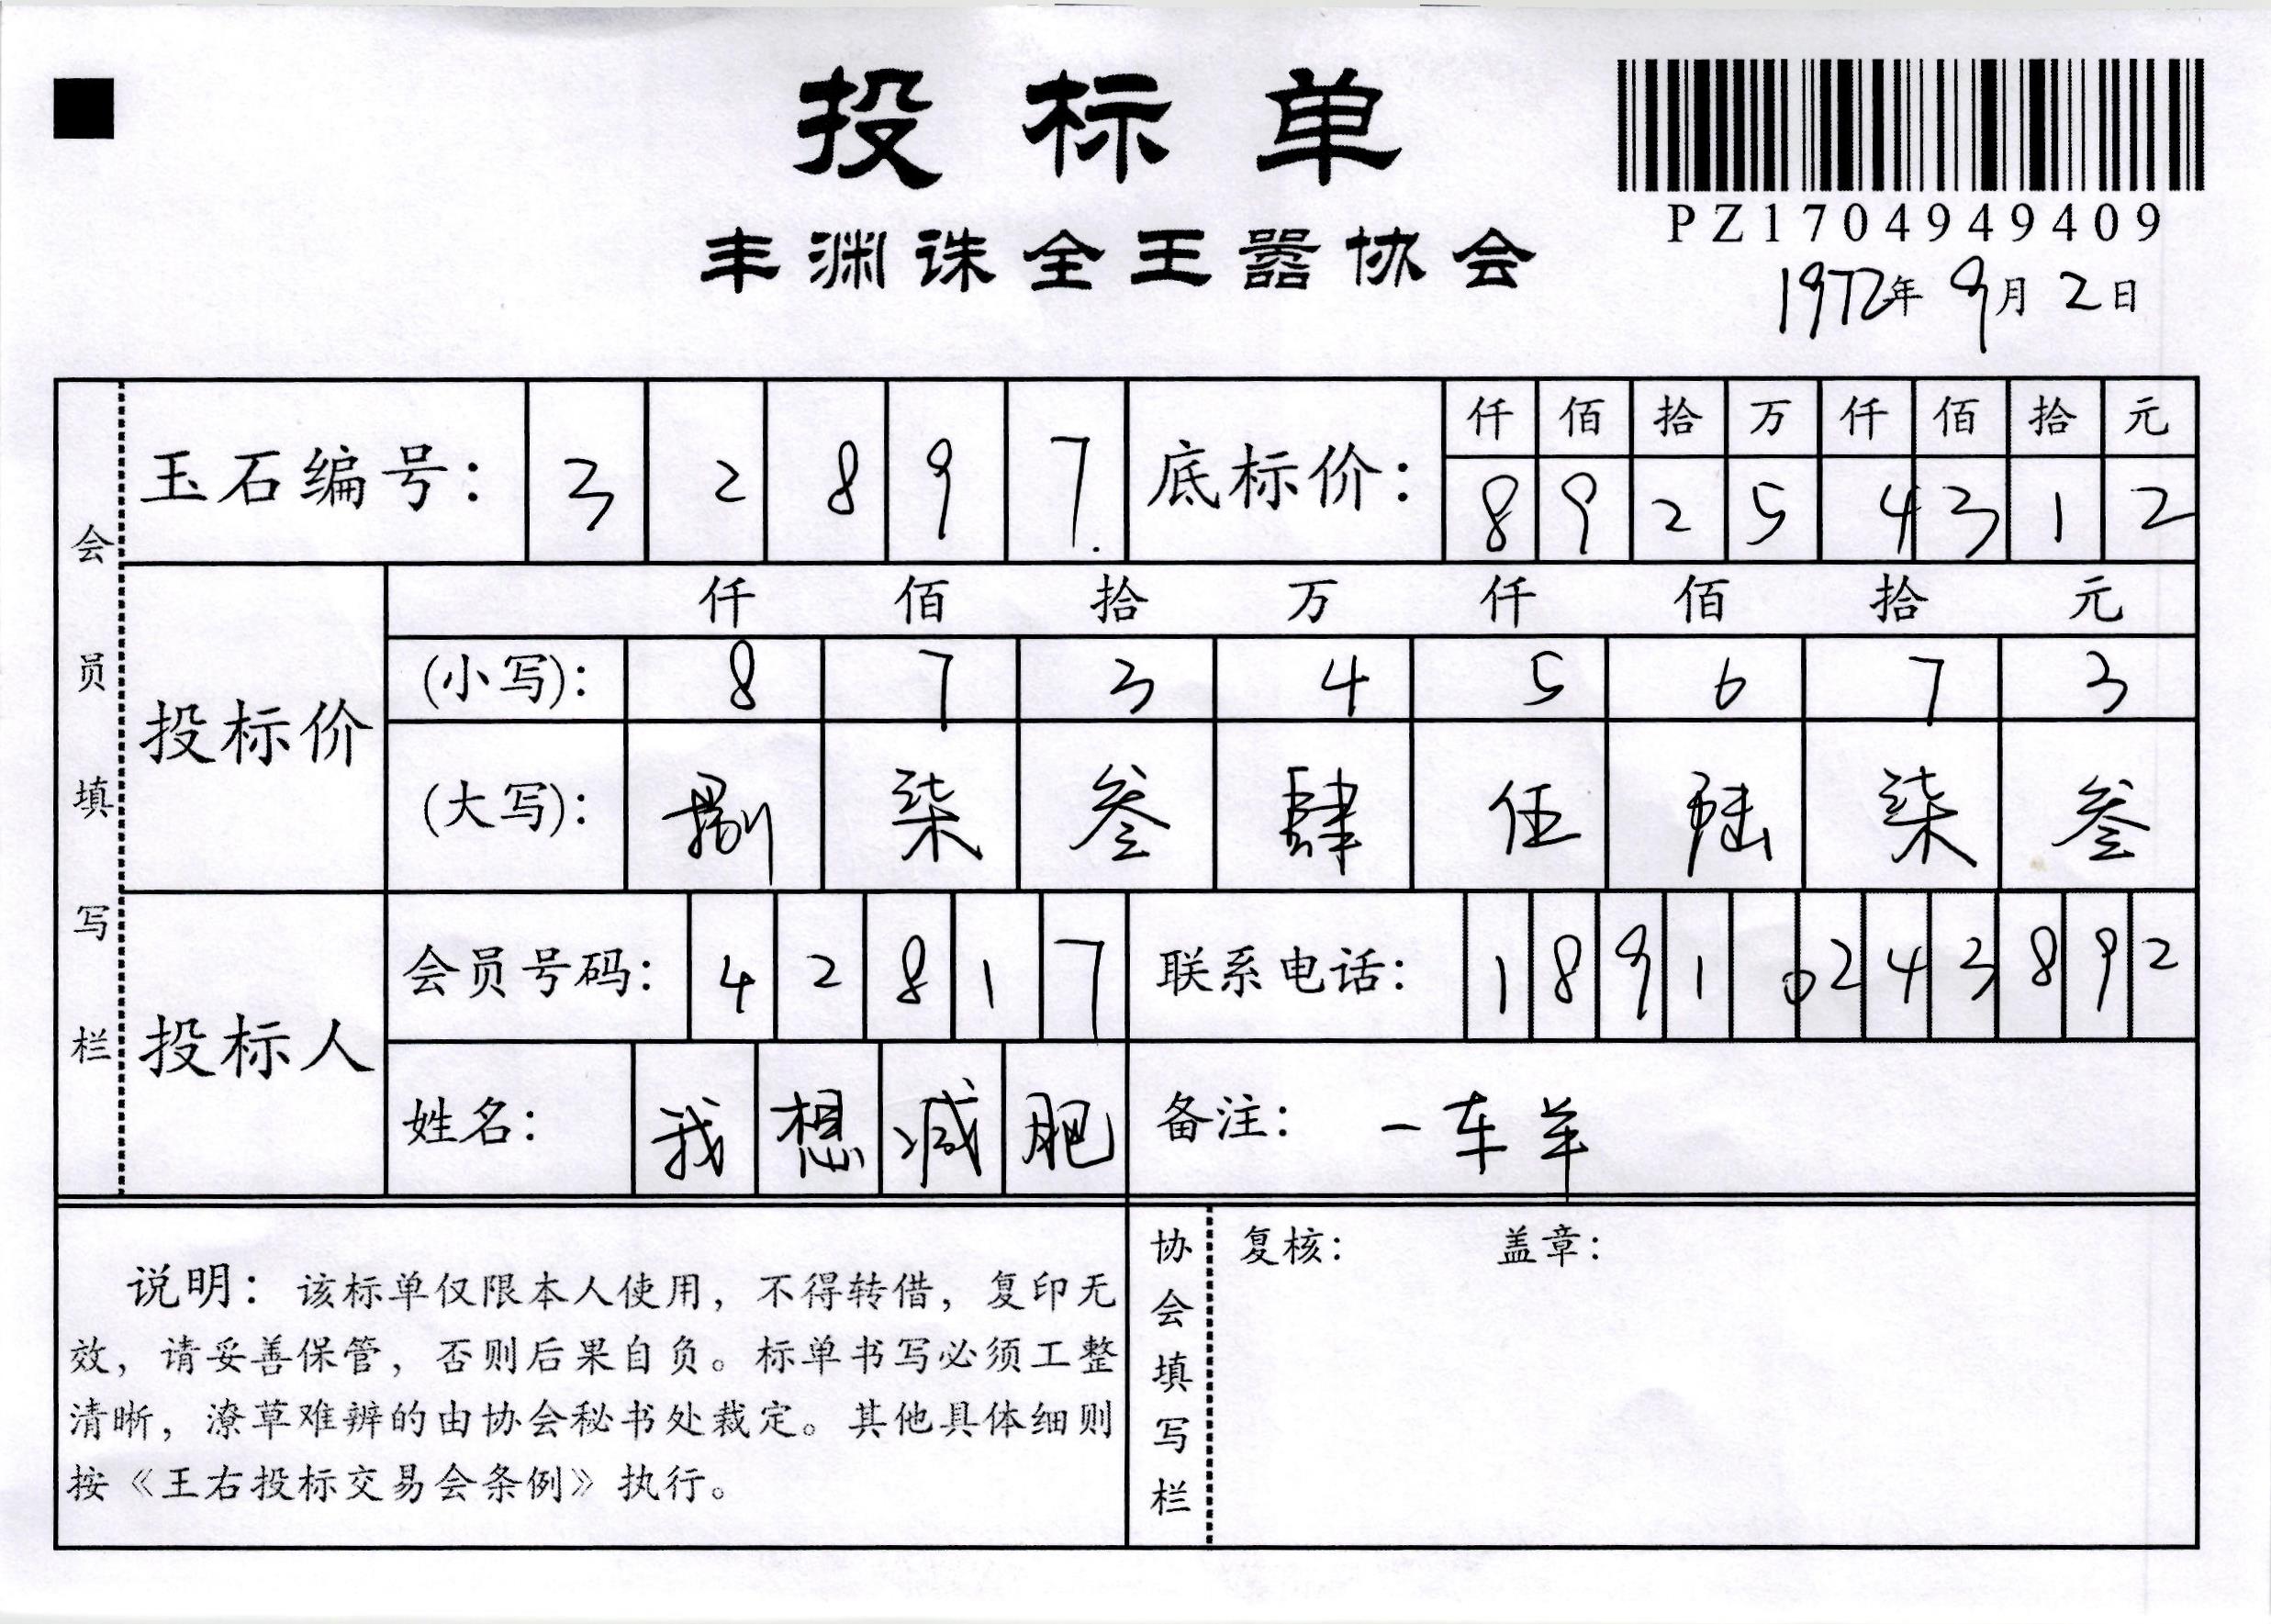 投标单
PZ1704949409
丰渊诛全王嚣协会
1972年 9月 2日
会员填写栏
玉石编号: 3 2 8 9 7.
底标价: 仟 佰 拾 万 仟 佰 拾 元
8 9 2 5 4 3 1 2
投标价
仟 佰 拾 万 仟 佰 拾 元
(小写): 8 7 3 4 5 6 7 3
(大写): 捌 柒 叁 肆 伍 陆 柒 叁
投标人
会员号码: 4 2 8 1 7
联系电话: 1 8 9 1 0 2 4 3 8 9 2
姓名: 我 想 减 肥
备注: 一车羊
说明: 该标单仅限本人使用, 不得转借, 复印无
效, 请妥善保管, 否则后果自负。标单书写必须工整
清晰, 潦草难辨的由协会秘书处裁定。其他具体细则
按《王右投标交易会条例》执行。
协会填写栏
复核: 盖章: